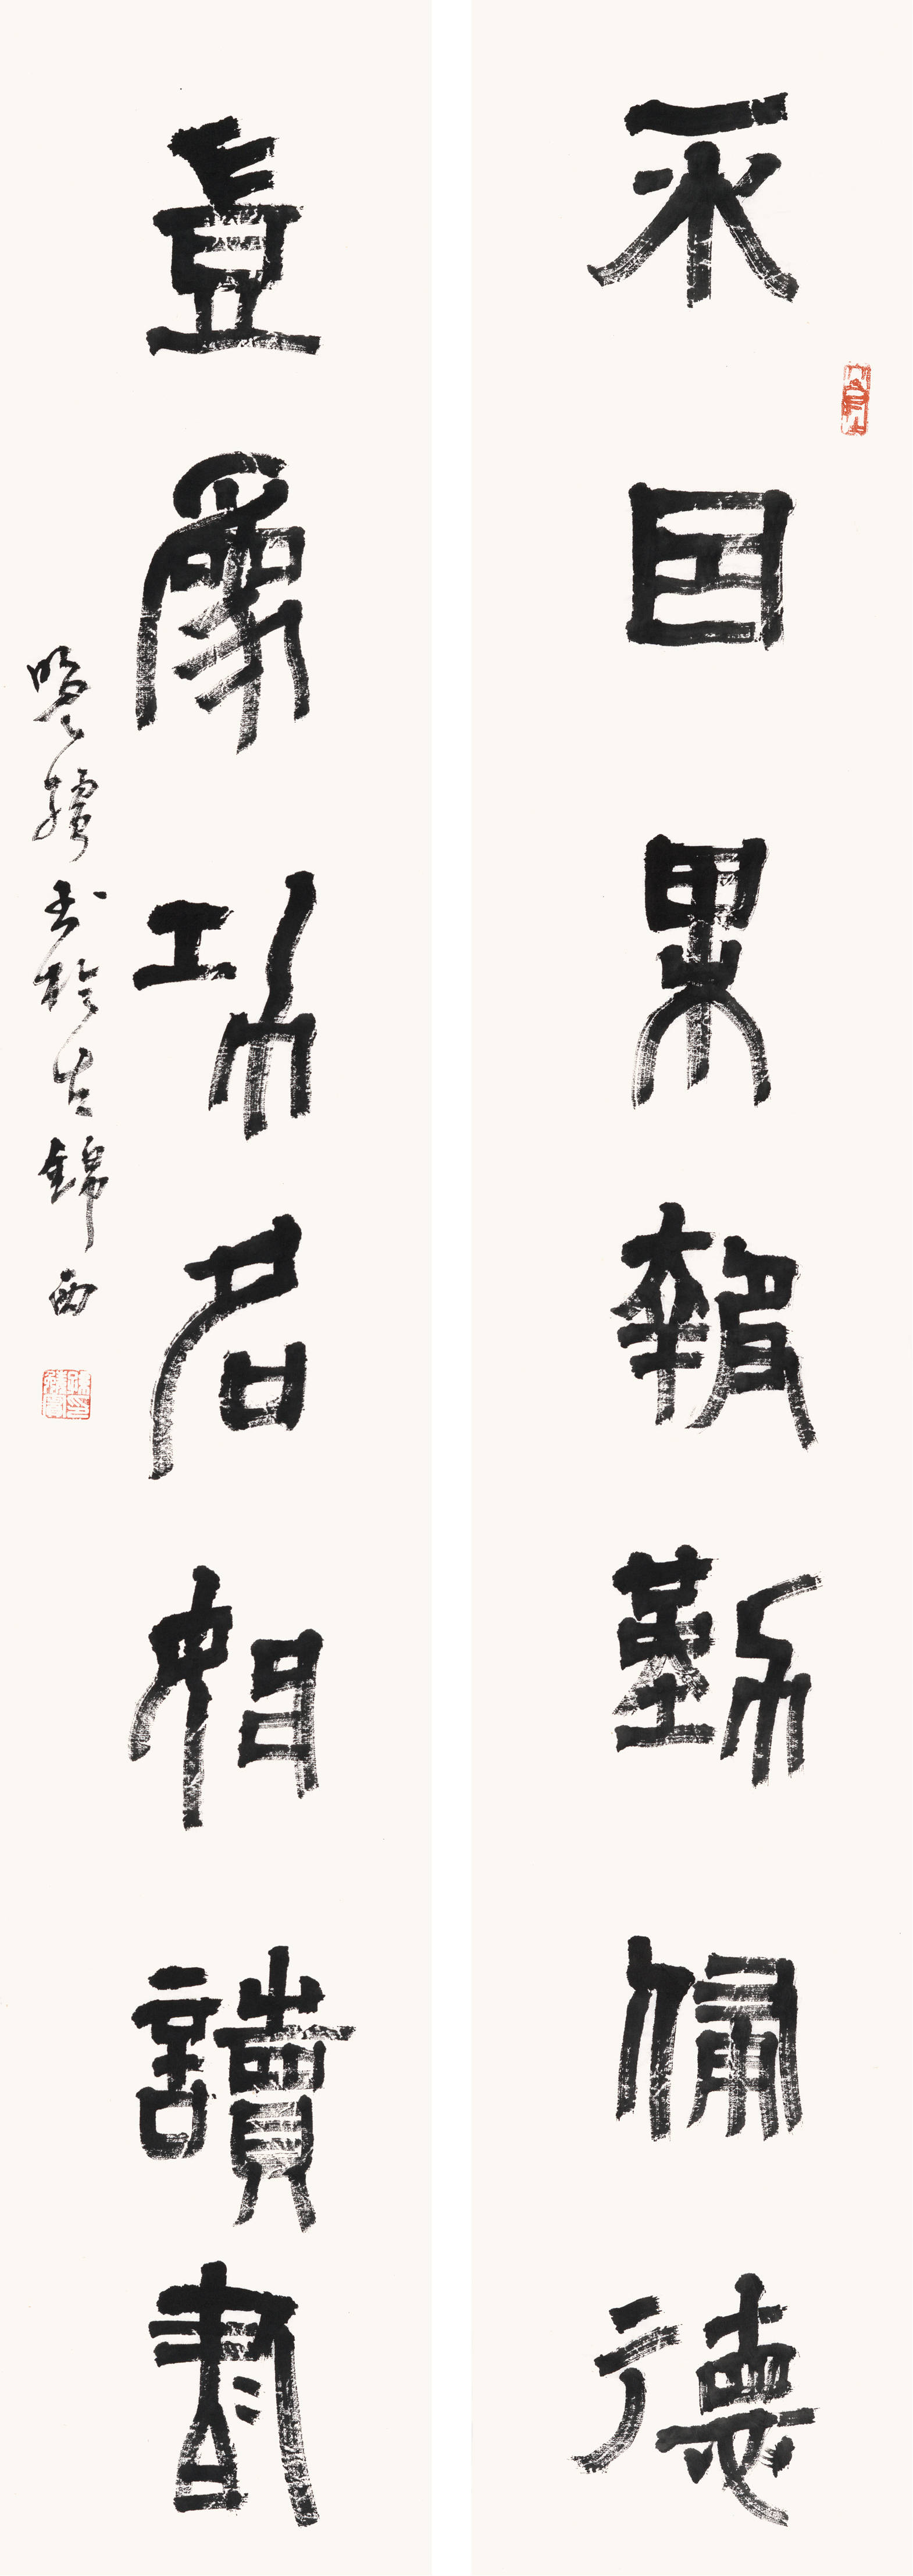 不因果報勤修德
豈為功名始讀書
书於古錦西